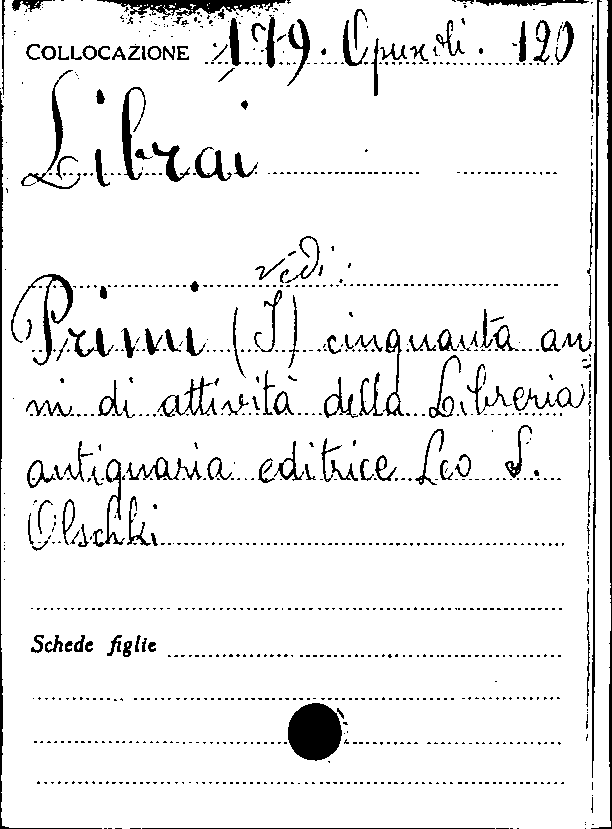 COLLOCAZIONE 179. Opuscoli. 120
Librai
vedi:
Primi (I) cinquanta an
ni di attività della Libreria
antiquaria editrice Leo S.
Olschki
Schede figlie